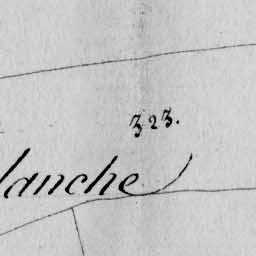 323.
lanche